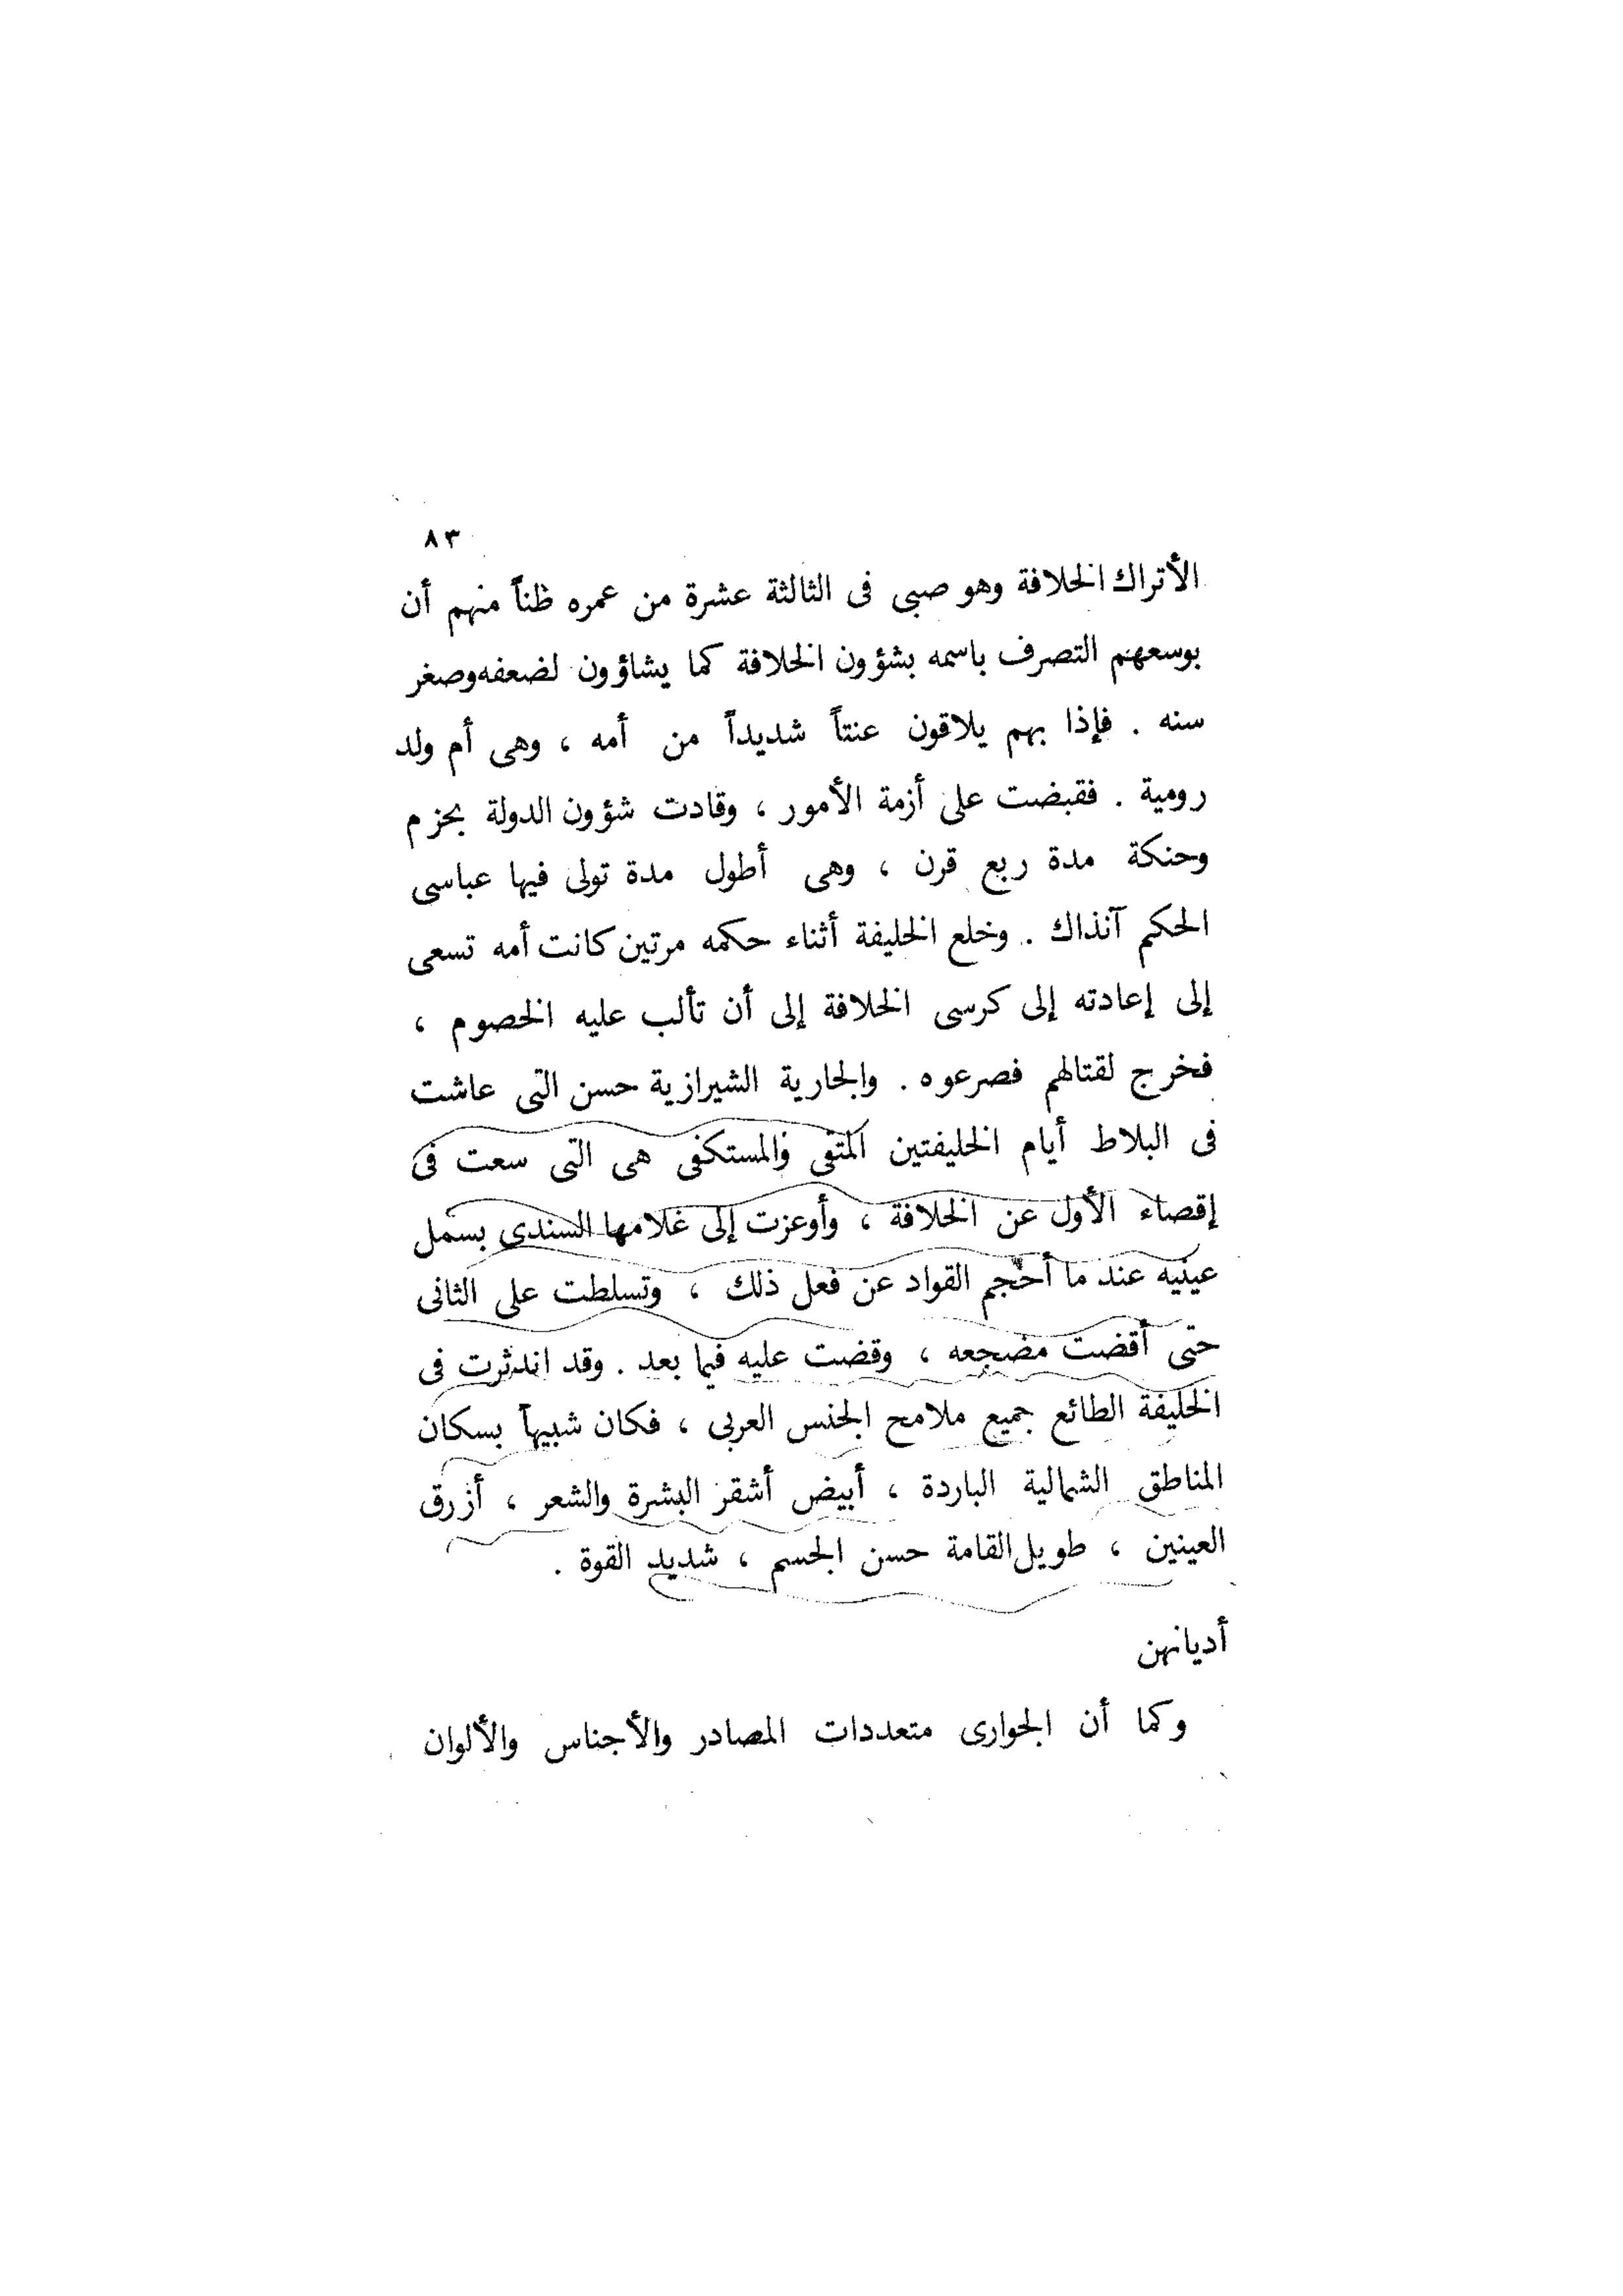 ٨٣
الأتراك الخلافة وهو صبى فى الثالثة عشرة من عمره ظناً منهم أن
بوسعهم التصرف باسمه بشؤون الخلافة كما يشاؤون لضعفه وصغر
سنه . فإذا بهم يلاقون عنتاً شديداً من أمه ، وهى أم ولد
رومية . فقبضت على أزمة الأمور ، وقادت شؤون الدولة بحزم
وحنكة مدة ربع قرن ، وهى أطول مدة تولى فيها عباسى
الحكم آنذاك . وخلع الخليفة أثناء حكمه مرتين كانت أمه تسعى
إلى إعادته إلى كرسى الخلافة إلى أن تألب عليه الخصوم ،
فخرج لقتالهم فصرعوه . والجارية الشيرازية حسن التى عاشت
فى البلاط أيام الخليفتين المتقى والمستكفى هى التى سعت فى
إقصاء الأول عن الخلافة ، وأوعزت إلى غلامها السندى بسمل
عينيه عند ما أحجم القواد عن فعل ذلك ، وتسلطت على الثانى
حتى أقضت مضجعه ، وقضت عليه فيما بعد . وقد اندثرت فى
الخليفة الطائع جميع ملامح الجنس العربى ، فكان شبيهاً بسكان
المناطق الشمالية الباردة ، أبيض أشقر البشرة والشعر ، أزرق
العينين ، طويل القامة حسن الجسم ، شديد القوة .
أديانهن
وكما أن الجوارى متعددات المصادر والأجناس والألوان